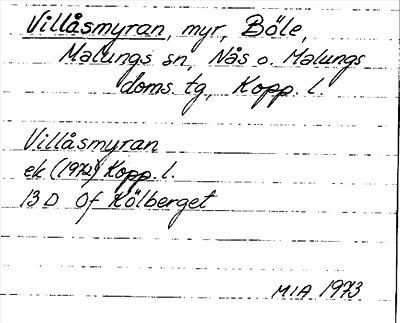 Villåsmyran, myr, Böle,
Malungs sn, Nås o. Malungs
doms. tg, Kopp. l.
Villåsmyran
ek (1972) Kopp. l.
13 D Of Kölberget
MIA 1973